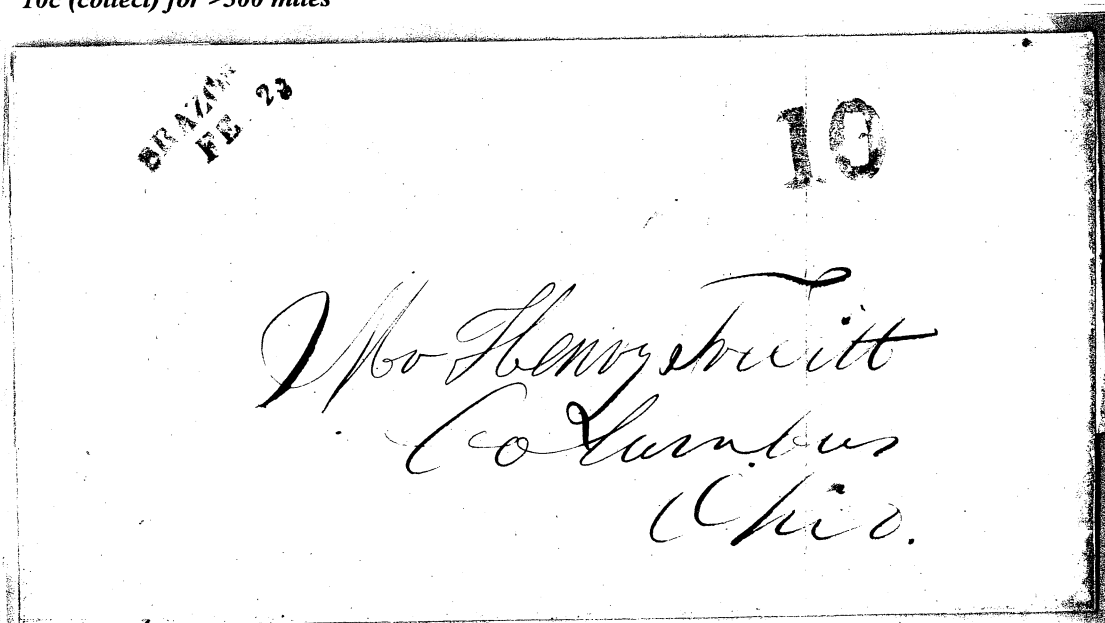 10c (collect) for >300 miles
BRAZOS
FE 23
10
Mr Henry
Columbus
Ohio.